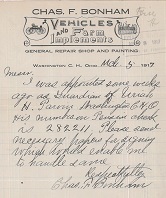 CHAS. F. BONHAM
VEHICLES
AND Farm
Implements
GENERAL REPAIR SHOP AND PAINTING.
WASHINGTON C. H. OHIO, Oct. 5 1917
I was appointed some weeks
ago as Guardian of
H. Washington C H O
his number on Pension check
is 282211. Please send
necessary papers for signing
which would enable me
to handle same
Respectfully
Chas F Bonham